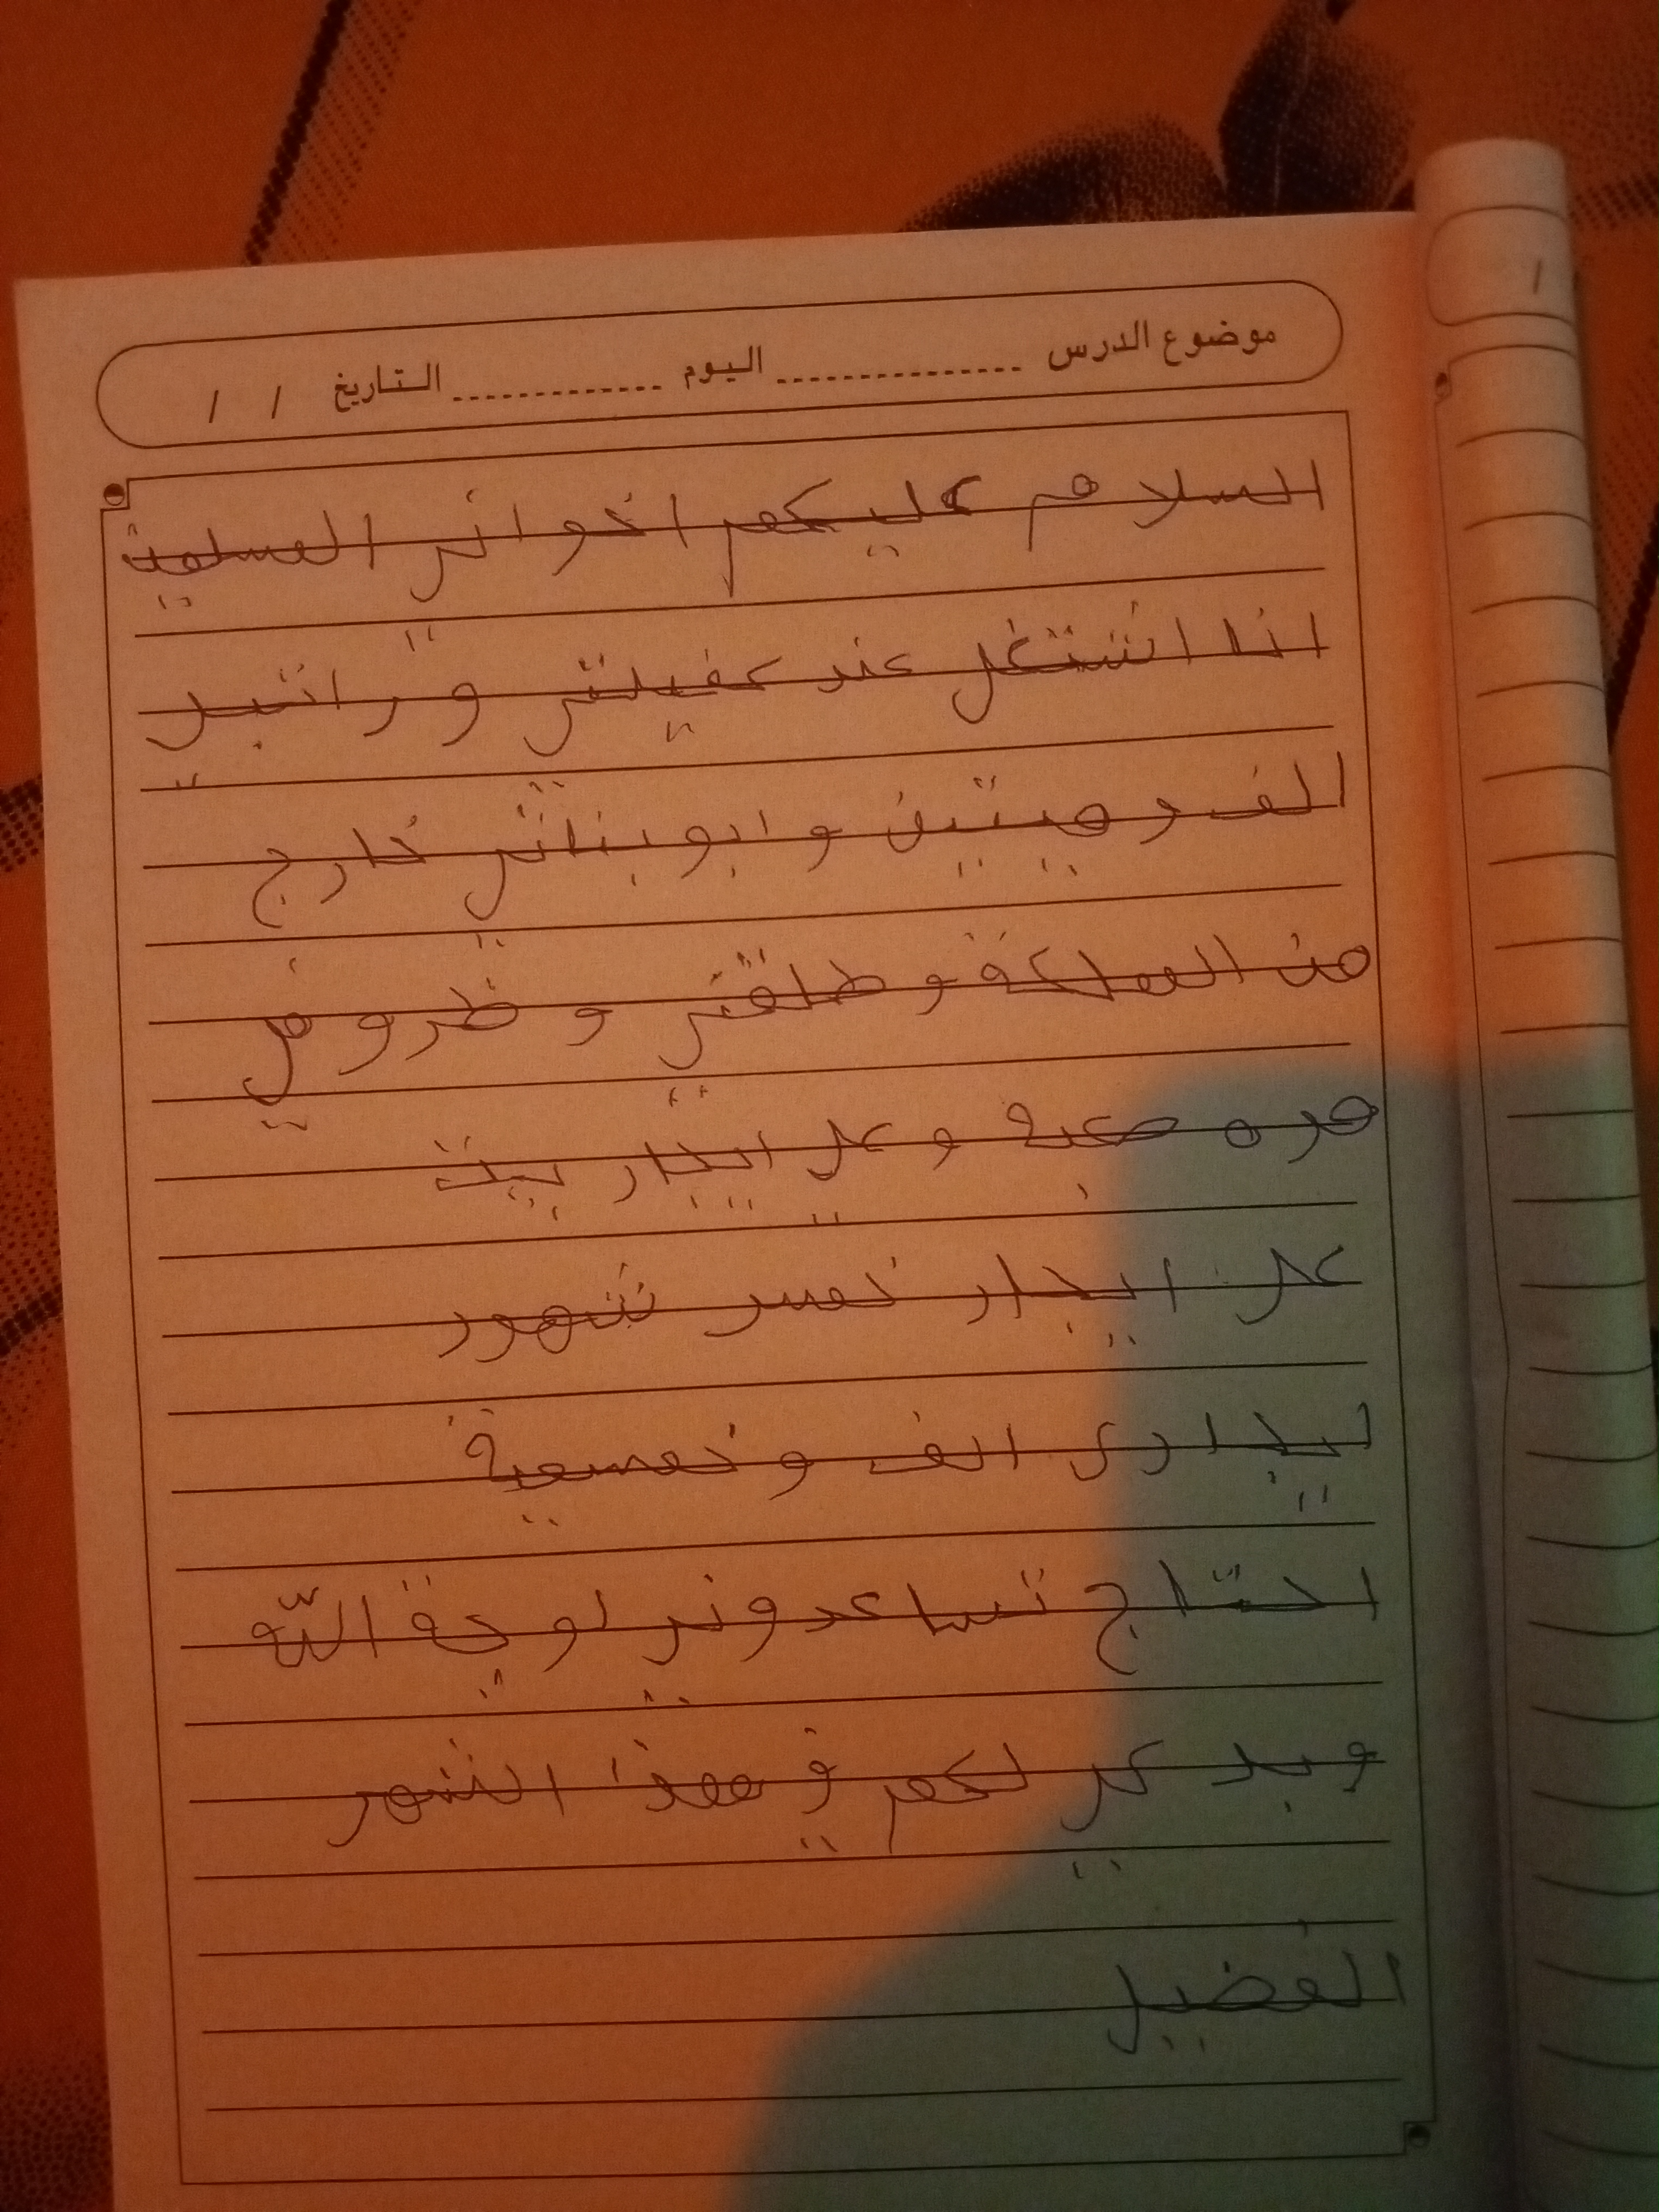 موضوع الدرس ............... اليوم ............. التاريخ / /
السلام عليكم اخواني المسلمين
انا اشتغل عند كفيلتي و راتبي
الف و ميتين و ابو بناتي خارج
من المملكة و طلقني و ظروفي
مره صعبه و علي ايجار بيت
علي ايجار خمس شهور
ايجاري الف و خمسمية
احتاج تساعدوني لوجة اللّه
وبدعي لكم في هذا الشهر
الفضيل